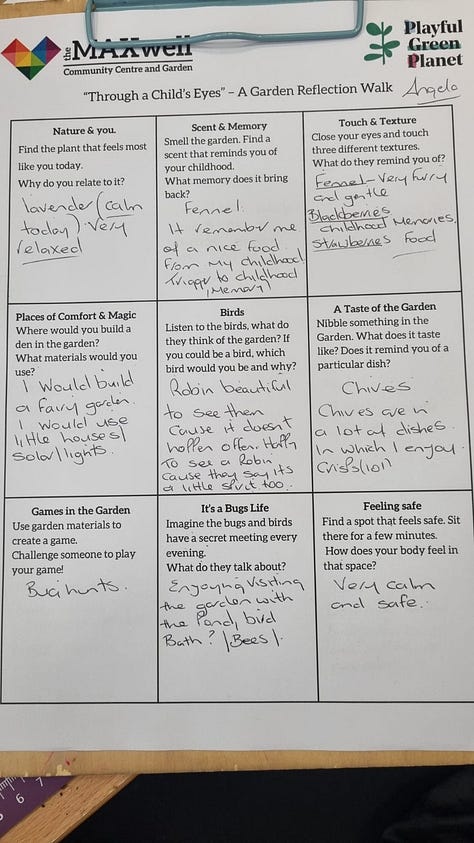 the MAXwell
Community Centre and Garden
Playful
Green
Planet
"Through a Child's Eyes" – A Garden Reflection Walk
Angela
Nature & you.
Find the plant that feels most
like you today.
Why do you relate to it?
lavender (calm
today). Very
relaxed
Scent & Memory
Smell the garden. Find a
scent that reminds you of
your childhood.
What memory does it bring
back?
Fennel.
It remember me
of a nice food
from my childhood
Trigger to childhood
(Memory)
Touch & Texture
Close your eyes and touch
three different textures.
What do they remind you of?
Fennel - Very furry
and gentle
Blackberries
childhood Memories.
Strawberries Food
Places of Comfort & Magic
Where would you build a
den in the garden?
What materials would you
use?
I would build
a fairy garden.
I would use
little houses/
solar/lights.
Birds
Listen to the birds, what do
they think of the garden? If
you could be a bird, which
bird would you be and why?
Robin beautiful
to see them
Cause it doesn't
happen often. Happy
To see a Robin
cause they say its
a little spirit too.
A Taste of the Garden
Nibble something in the
Garden. What does it taste
like? Does it remind you of a
particular dish?
Chives
Chives are in
a lot of dishes.
In which I enjoy.
Games in the Garden
Use garden materials to
create a game.
Challenge someone to play
your game!
Bug hunts.
It's a Bugs Life
Imagine the bugs and birds
have a secret meeting every
evening.
What do they talk about?
Enjoying Visiting
the garden with
the Pond, bird
Bath? /Bees/.
Feeling safe
Find a spot that feels safe. Sit
there for a few minutes.
How does your body feel in
that space?
Very calm
and safe..
5 6 7